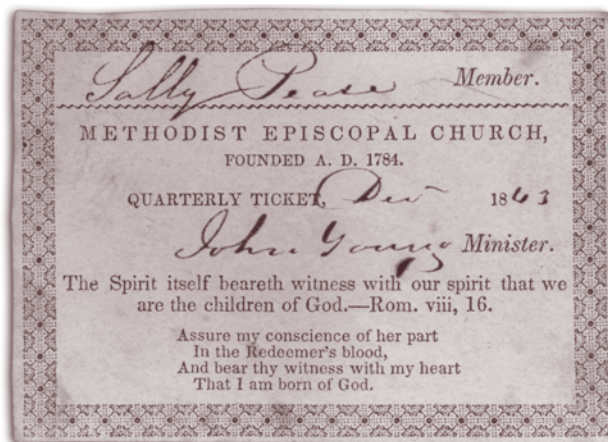 Sally Pease Member.
METHODIST EPISCOPAL CHURCH,
FOUNDED A. D. 1784.
QUARTERLY TICKET, Dec 1863
John Young Minister.
The Spirit itself beareth witness with our spirit that we
are the children of God.—Rom. viii, 16.
Assure my conscience of her part
In the Redeemer's blood,
And bear thy witness with my heart
That I am born of God.